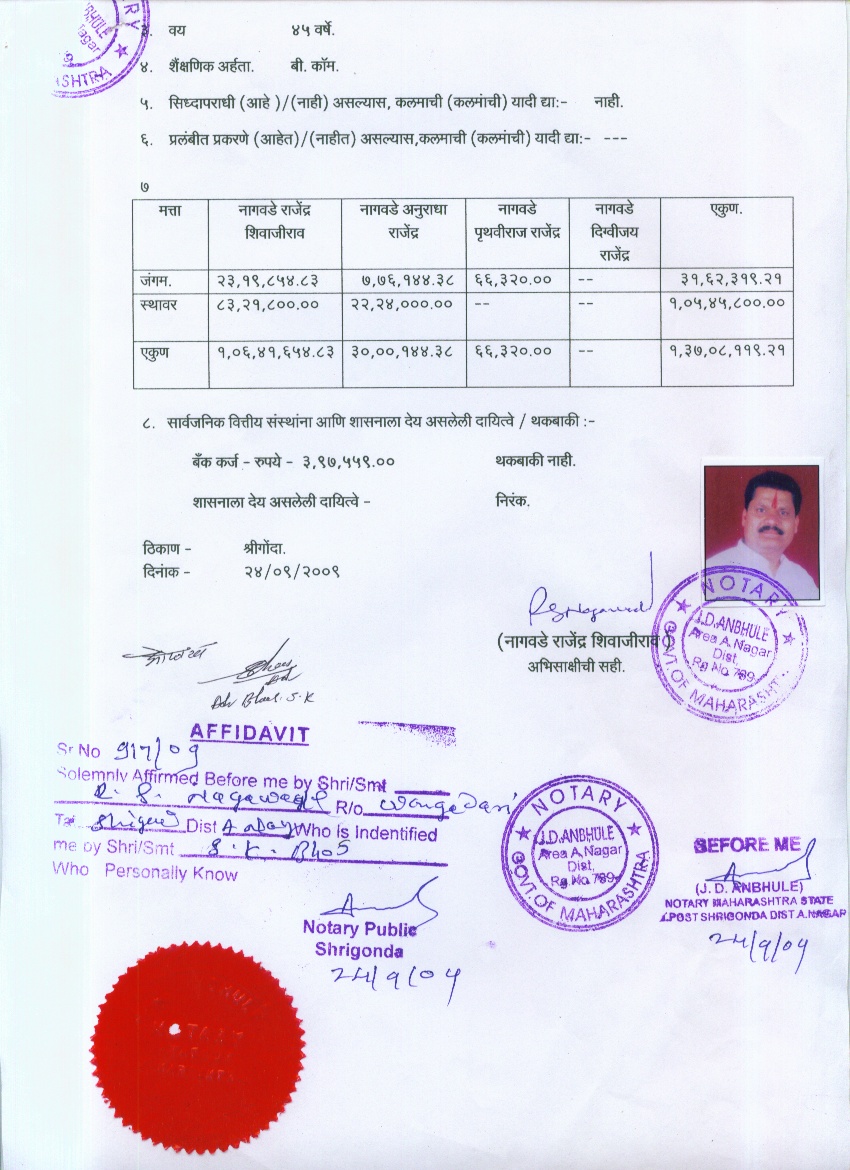 ३. वय ४५ वर्षे.
४. शैंक्षणिक अर्हता. बी. कॉम.
५. सिध्दापराधी (आहे )/(नाही) असल्यास, कलमाची (कलमांची) यादी द्या:- नाही.
६. प्रलंबीत प्रकरणे (आहेत)/(नाहीत) असल्यास,कलमाची (कलमांची) यादी द्या:- ---
७
मत्ता नागवडे राजेंद्र शिवाजीराव नागवडे अनुराधा राजेंद्र नागवडे पृथवीराज राजेंद्र नागवडे दिग्वीजय राजेंद्र एकुण.
जंगम. २३,१९,८५४.८३ ७,७६,१४४.३८ ६६,३२०.०० -- ३१,६२,३१९.२१
स्थावर ८३,२१,८००.०० २२,२४,०००.०० -- -- १,०५,४५,८००.००
एकुण १,०६,४१,६५४.८३ ३०,००,१४४.३८ ६६,३२०.०० -- १,३७,०८,११९.२१
८. सार्वजनिक वित्तीय संस्थांना आणि शासनाला देय असलेली दायित्वे / थकबाकी :-
बँक कर्ज - रुपये - ३,९७,५५९.०० थकबाकी नाही.
शासनाला देय असलेली दायित्वे - निरंक.
ठिकाण - श्रीगोंदा.
दिनांक - २४/०९/२००९
(नागवडे राजेंद्र शिवाजीराव )
अभिसाक्षीची सही.
NOTARY
J.D.ANBHULE
Area A.Nagar
Dist,
Rg.No.789
GOVT.OF MAHARASHT
AFFIDAVIT
Sr No 917/09
Solemnly Affirmed Before me by Shri/Smt
R. S. Nagawade R/o Wangadari
Tal Dist A Nagar Who is Indentified
me by Shri/Smt S. K. Bhos
Who Personally Know
Notary Public
Shrigonda
24/9/09
NOTARY
J.D.ANBHULE
Area A.Nagar
Dist,
Rg.No.789
GOVT.OF MAHARASHTRA
BEFORE ME
(J. D. ANBHULE)
NOTARY MAHARASHTRA STATE
A.POST SHRIGONDA DIST A.NAGAR
24/9/09